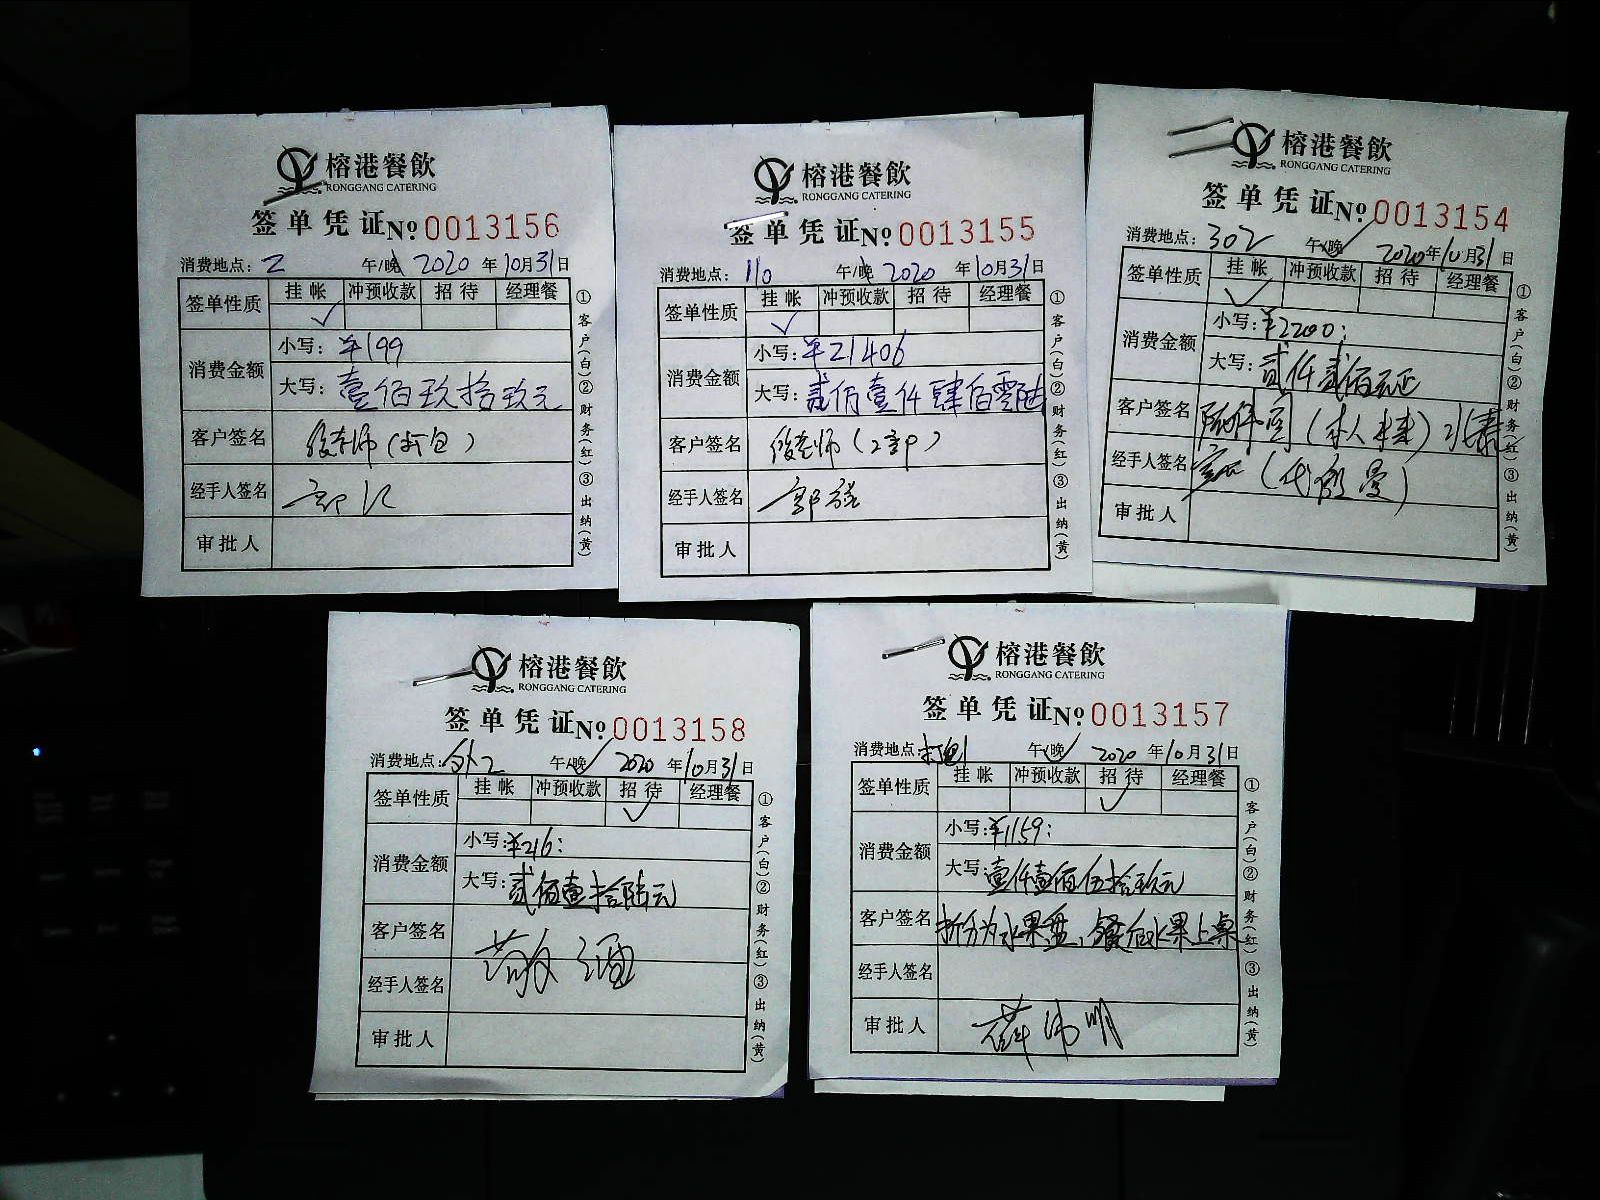 榕港餐飲
RONGGANG CATERING
签单凭证 № 0013156
消费地点: 2 午/晚 2020 年 10月31日
签单性质 挂帐 冲预收款 招待 经理餐
✓
消费金额 小写: ¥199
大写: 壹佰玖拾玖元
客户签名 老师(打包)
经手人签名
审批人
①客户(白)②财务(红)③出纳(黄)
榕港餐飲
RONGGANG CATERING
签单凭证 № 0013155
消费地点: 110 午/晚 2020 年 10月31日
签单性质 挂帐 冲预收款 招待 经理餐
✓
消费金额 小写: ¥21406
大写: 贰佰壹仟肆佰零陆
客户签名 老师
经手人签名
审批人
①客户(白)②财务(红)③出纳(黄)
榕港餐飲
RONGGANG CATERING
签单凭证 № 0013154
消费地点: 302 午/晚 ✓ 2020年10月31日
签单性质 挂帐 冲预收款 招待 经理餐
✓
消费金额 小写: ¥2200:
大写: 贰仟贰佰元正
客户签名 (本人未来)
经手人签名
审批人
①客户(白)②财务(红)③出纳(黄)
榕港餐飲
RONGGANG CATERING
签单凭证 № 0013158
消费地点: 外2 午/晚 ✓ 2020 年10月31日
签单性质 挂帐 冲预收款 招待 经理餐
✓
消费金额 小写: ¥216:
大写: 贰佰壹拾陆元
客户签名 敬酒
经手人签名
审批人
①客户(白)②财务(红)③出纳(黄)
榕港餐飲
RONGGANG CATERING
签单凭证 № 0013157
消费地点: 午/晚 ✓ 2020 年10月31日
签单性质 挂帐 冲预收款 招待 经理餐
✓
消费金额 小写: ¥1159:
大写: 壹仟壹佰伍拾玖元
客户签名 拆分为水果盘,餐后水果上桌
经手人签名
审批人 薛伟明
①客户(白)②财务(红)③出纳(黄)